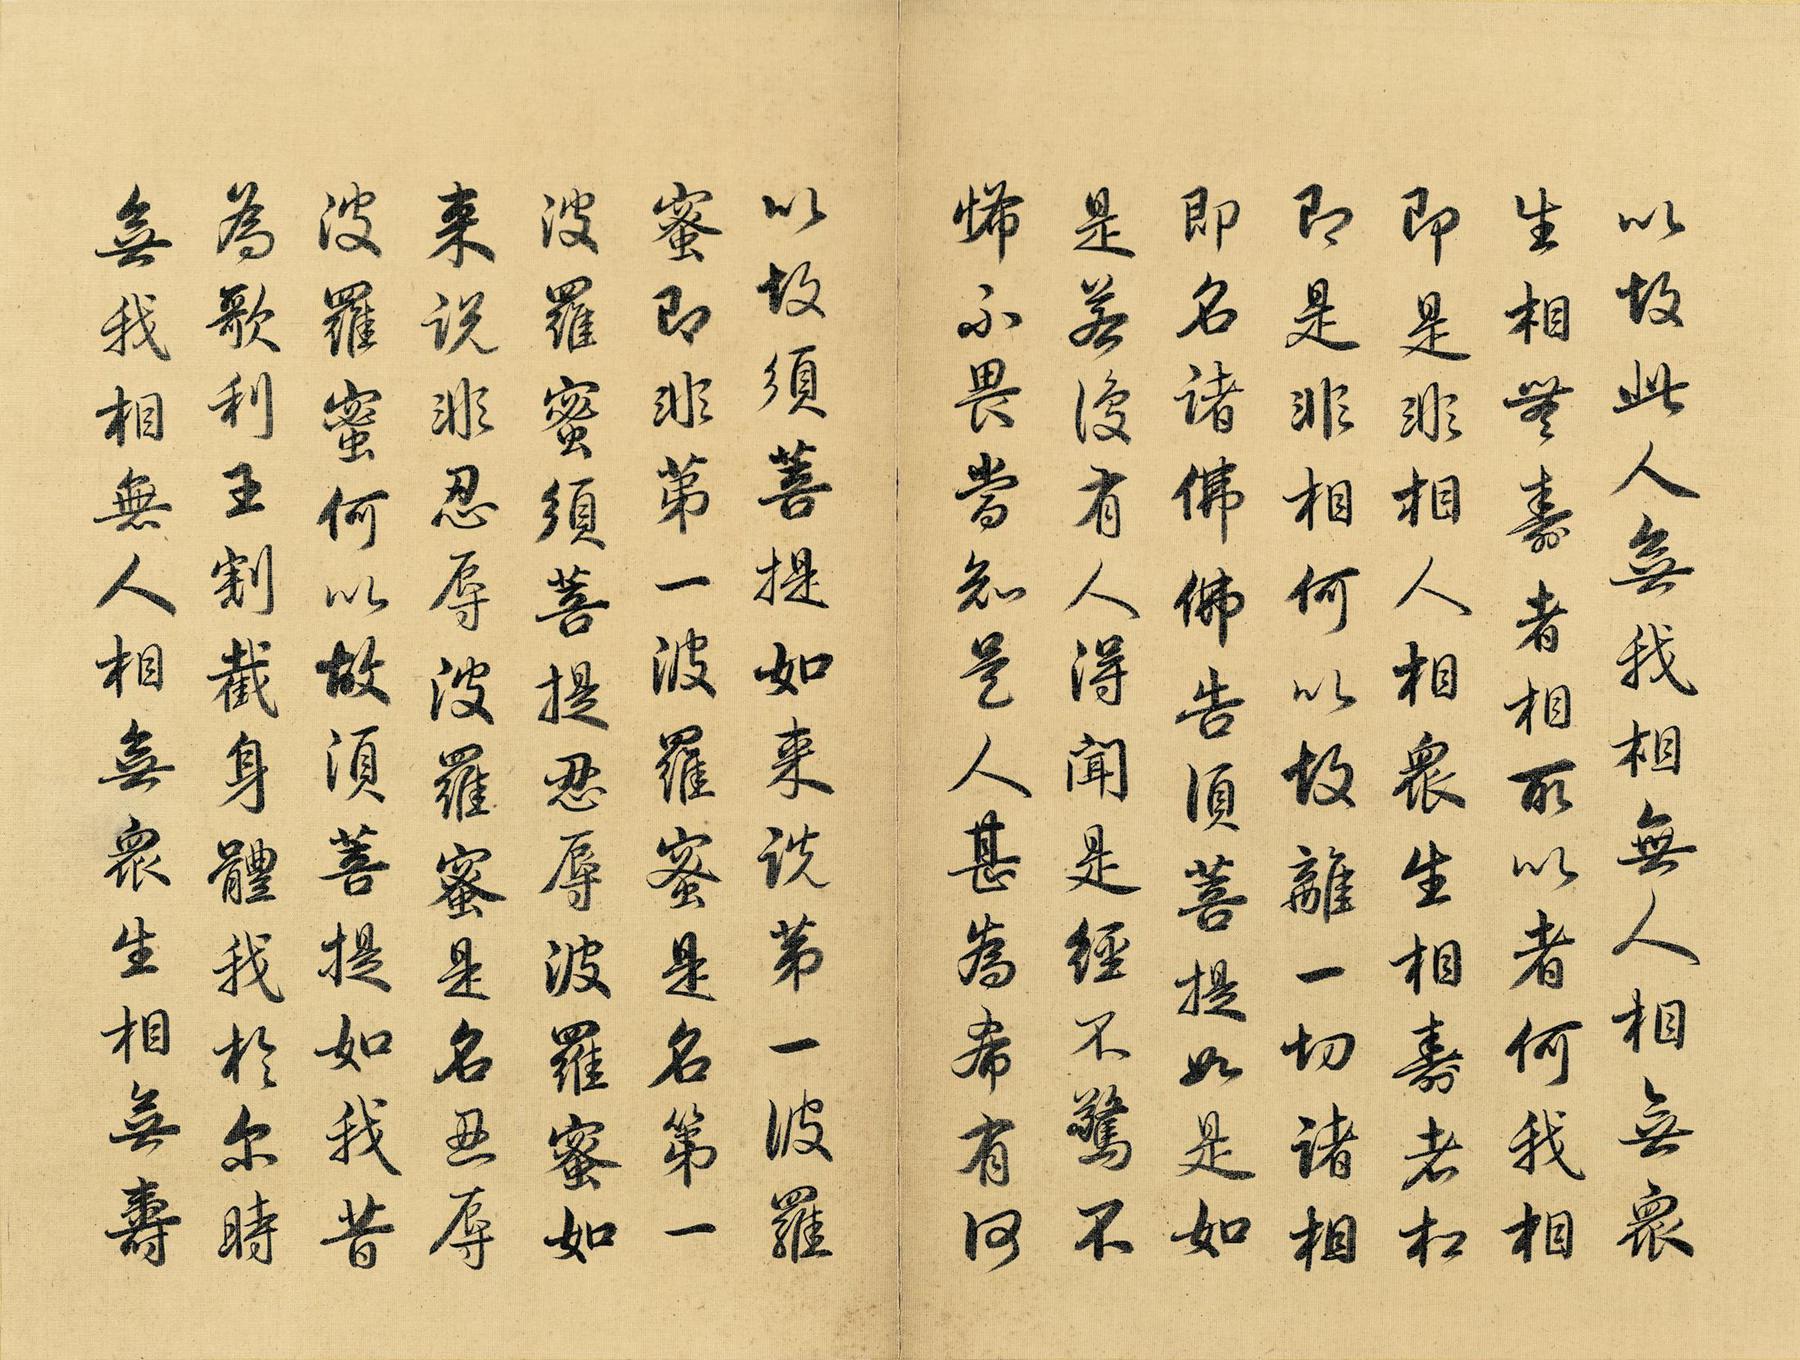 以故此人無我相無人相無衆
生相無壽者相所以者何我相
即是非相人相衆生相壽者相
即是非相何以故離一切諸相
即名諸佛佛告須菩提如是如
是若復有人得聞是經不驚不
怖不畏當知是人甚為希有何
以故須菩提如来説第一波羅
蜜即非第一波羅蜜是名第一
波羅蜜須菩提忍辱波羅蜜如
来説非忍辱波羅蜜是名忍辱
波羅蜜何以故須菩提如我昔
為歌利王割截身體我於尔時
無我相無人相無衆生相無壽